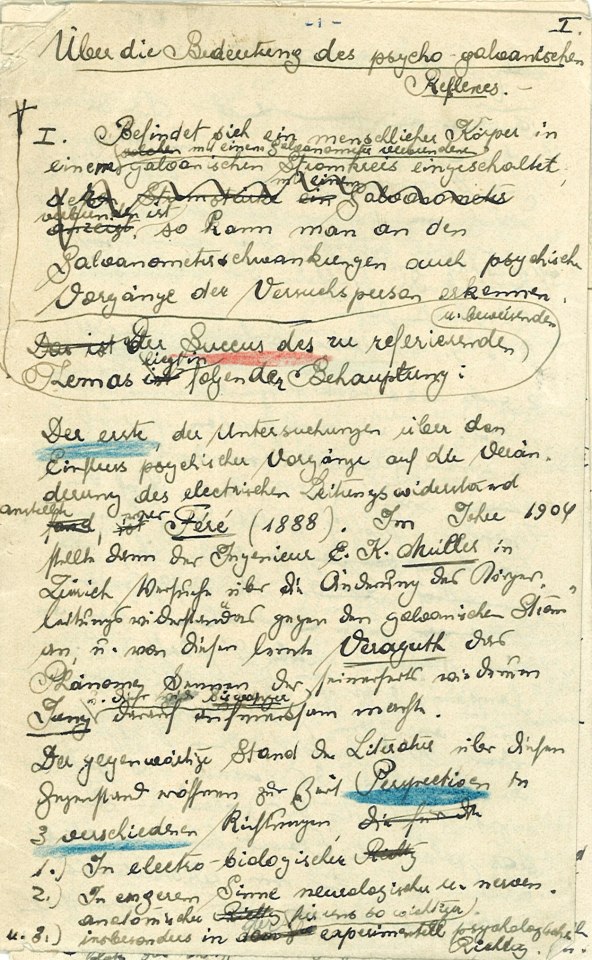 - 1 -
I.
Über die Bedeutung des psycho-galvanischen
Reflexes. -
I. Befindet sich ein menschlicher Körper in
mit einem Galvanometer verbundenen
einem galvanischen Stromkreis eingeschaltet,
mit einem
der Stromstärke ein Galvanometer
verbunden ist
anzeigt, so kann man an den
Galvanometerschwankungen auch psychische
Vorgänge der Versuchsperson erkennen.
u. beweisenden
Das ist Der Succus des zu referierenden
liegt in
Temas ist folgender Behauptung:
Der erste, der Untersuchungen über den
Einfluss psychischer Vorgänge auf die Verän-
derung des electrischen Leitungswiderstand
anstellte
fand, ist war Féré (1888). Im Jahre 1904
stellte dann der Ingenieur E. K. Müller in
Zürich Versuche über die Änderung des Körper-
leitungswiderstandes gegen den galvanischen Strom
an, u. von diesem lernte Veraguth das
Phänomen kennen, der seinerseits wiederum
Jung darauf aufmerksam machte.
Der gegenwärtige Stand der Literatur über diesen
Gegenstand eröffnen zur Zeit Perspectiven in
3 verschiedenen Richtungen, die für die
1.) In electro-biologischer Richtg
2.) In engerem Sinne neurologischer u. nerven-
anatomischer Richtg (für uns so wichtiger).
u. 3.) insbesondere in experimentell psychologischer
Richtg.